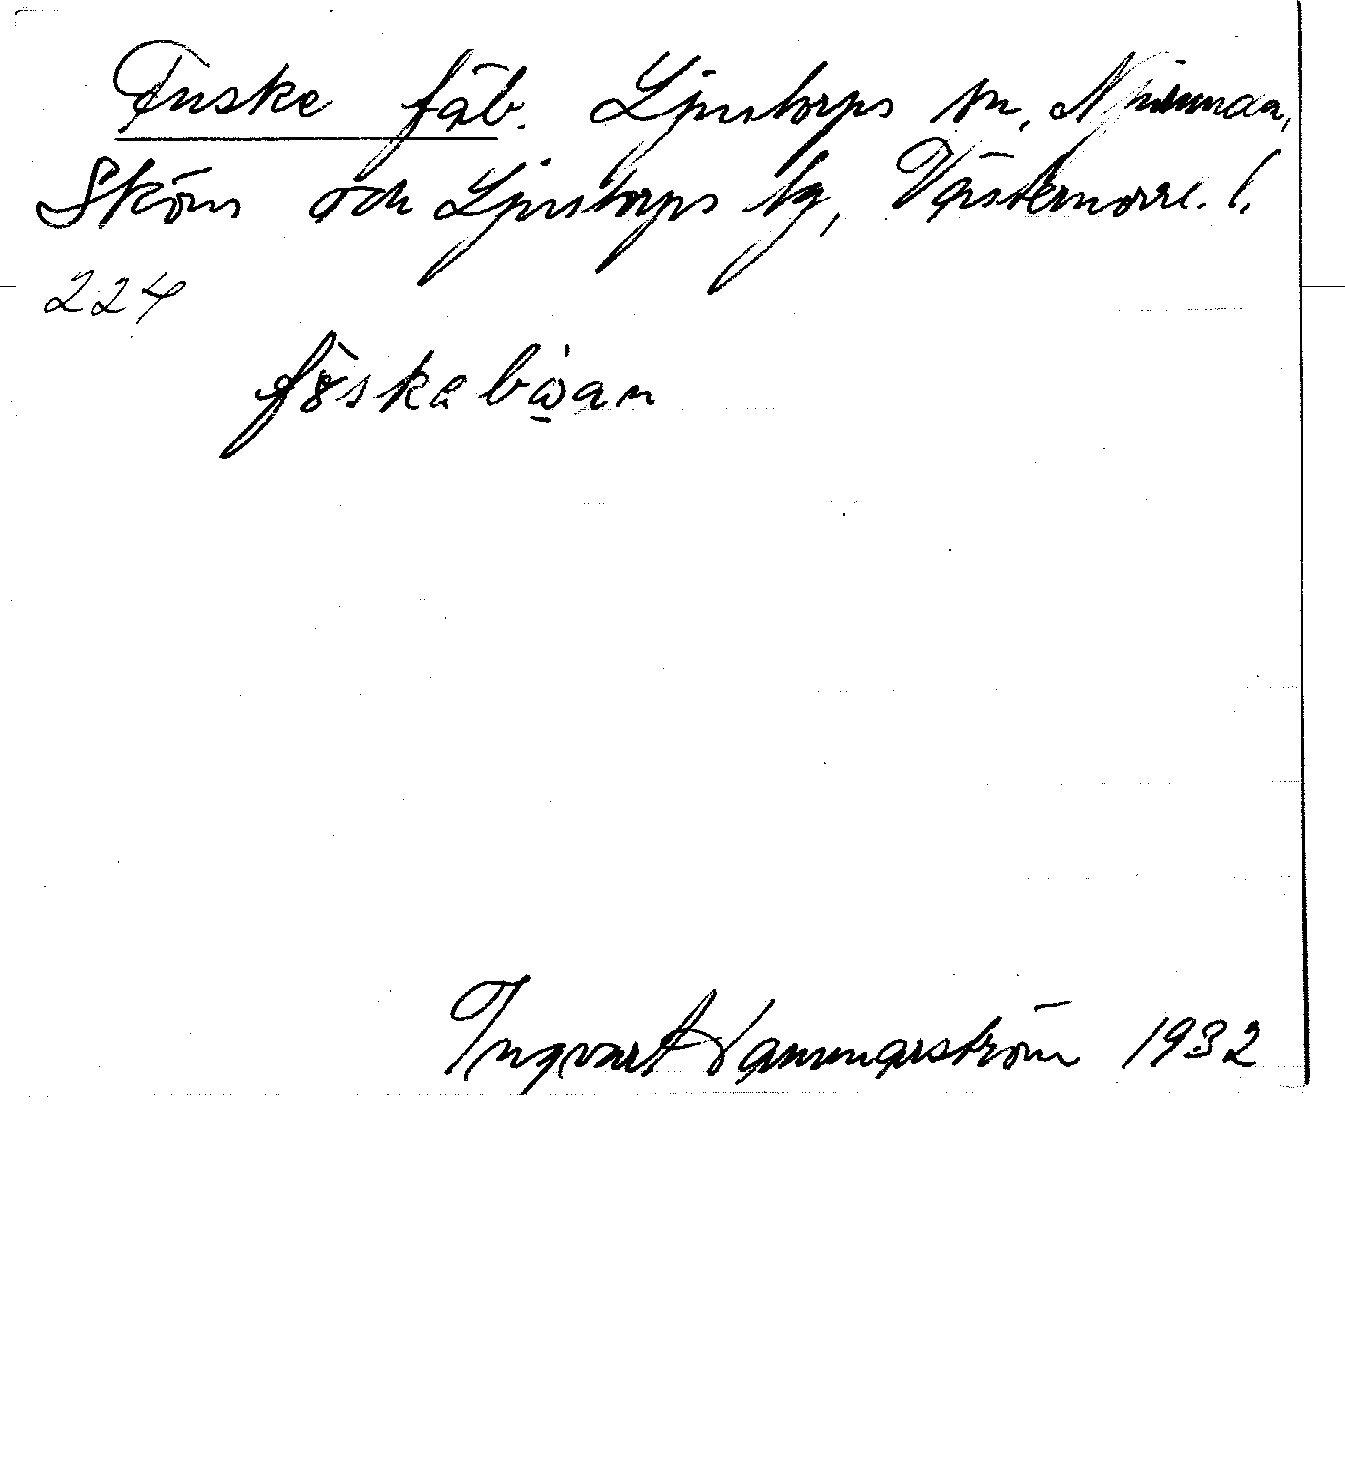 Fuske fäb. Ljustorps sn, Njurunda,
Sköns och Ljustorps tg, Västernorrl. l.
224
föskebo̱an
Ingvart Hammarström 1932